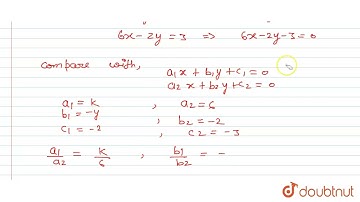 6x - 2y = 3 ⇒ 6x-2y-3=0
compare with,
a₁x + b₁y + c₁ = 0
a₂x + b₂y + c₂ = 0
a₁ = k , a₂ = 6
b₁ = -y , b₂ = -2
c₁ = -2 , c₂ = -3
a₁/a₂ = k/6 , b₁/b₂ = -
doubtnut